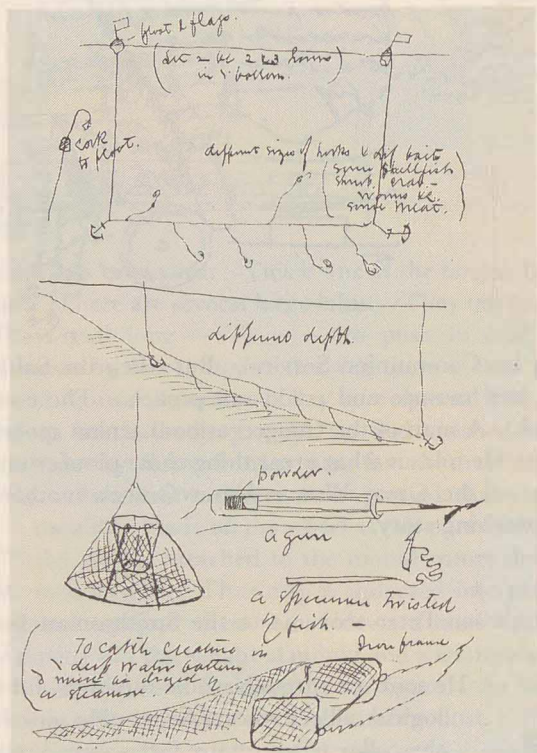 float & flags.
(dit = be 2 or 3 hours
in bottom.
cork
to float.
different sizes of hooks & dif bait
some shellfish
shrub, crab -
worms &c.
some meat.
different depth
powder.
a gun
a specimen twisted
of fish. -
To catch creature in
deep water bottom
must be draged by
a steamer
Iron frame